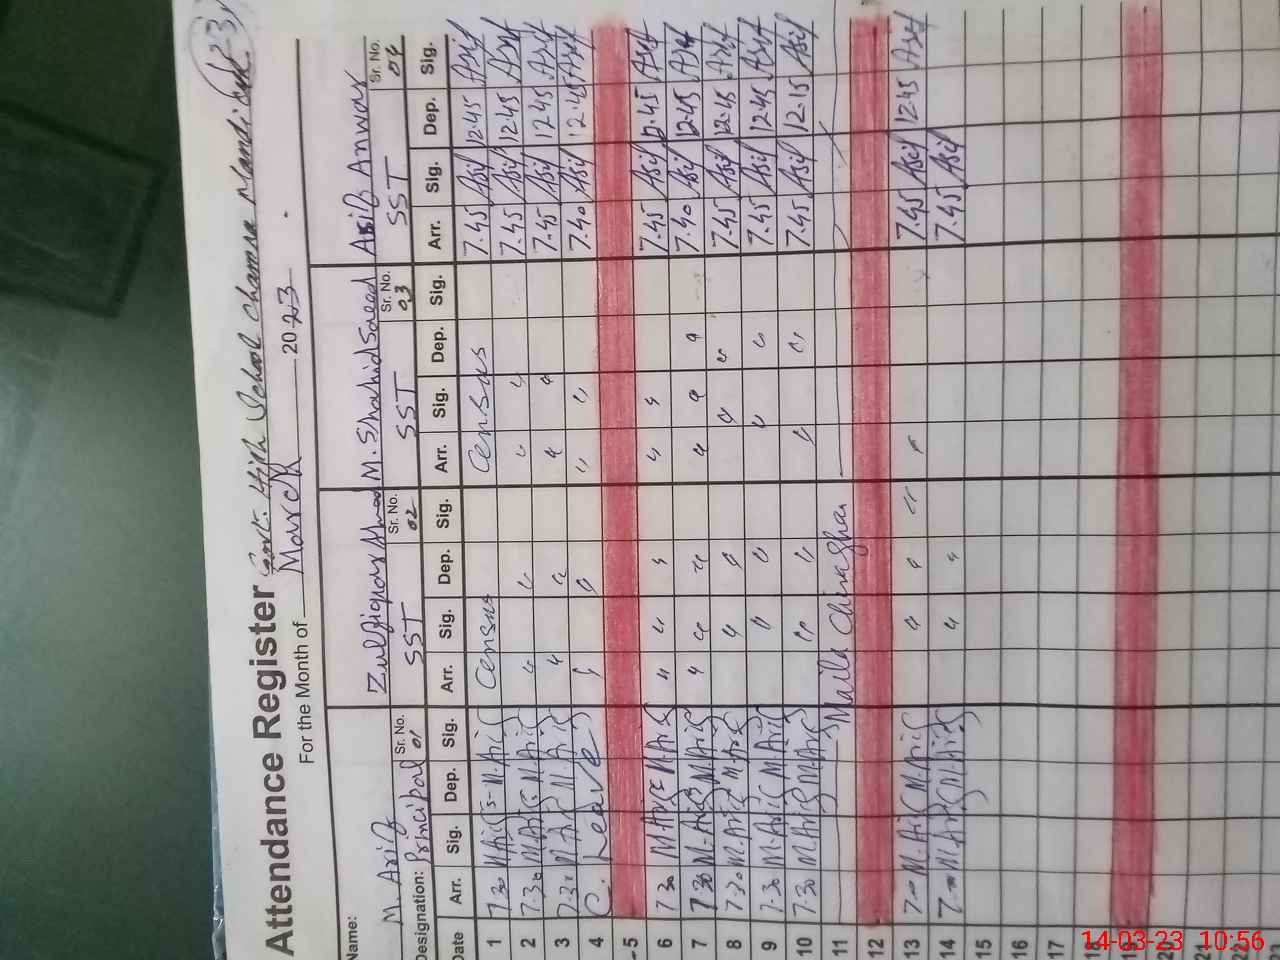 Attendance Register Govt. High School Chamra Mandi
For the Month of March 2023
Name: M. Arif Zulfiqar Ahmad M. Shahid Saeed Asif Anwar
Sr. No. 01 Sr. No. 02 Sr. No. 03 Sr. No. 04
Designation: Principal SST SST SST
Date Arr. Sig. Dep. Sig. Arr. Sig. Dep. Sig. Arr. Sig. Dep. Sig. Arr. Sig. Dep. Sig.
1 7.30 M.Arif M.Arif Census Census 7.45 Asif 12.45 Asif
2 7.30 M.Arif M.Arif " " " " 7.45 Asif 12.45 Asif
3 7.30 M.Arif M.Arif " " " " 7.45 Asif 12.45 Asif
4 C. Leave " " " " 7.40 Asif 12.45 Asif
5
6 7.30 M.Arif M.Arif " " " " " 7.45 Asif 12.45 Asif
7 7.30 M.Arif M.Arif " " " " " " 7.40 Asif 12.45 Asif
8 7.30 M.Arif M.Arif " " " " 7.45 Asif 12.45 Asif
9 7.30 M.Arif M.Arif " " " " 7.45 Asif 12.45 Asif
10 7.30 M.Arif M.Arif " " " " 7.45 Asif 12.15 Asif
11 Maila Chiraghan
12
13 M.Arif M.Arif " " " " 7.45 Asif 12.45 Asif
14 M.Arif M.Arif " " 7.45 Asif
15
16
17
18
19
20
21
22
23
14-03-23 10:56